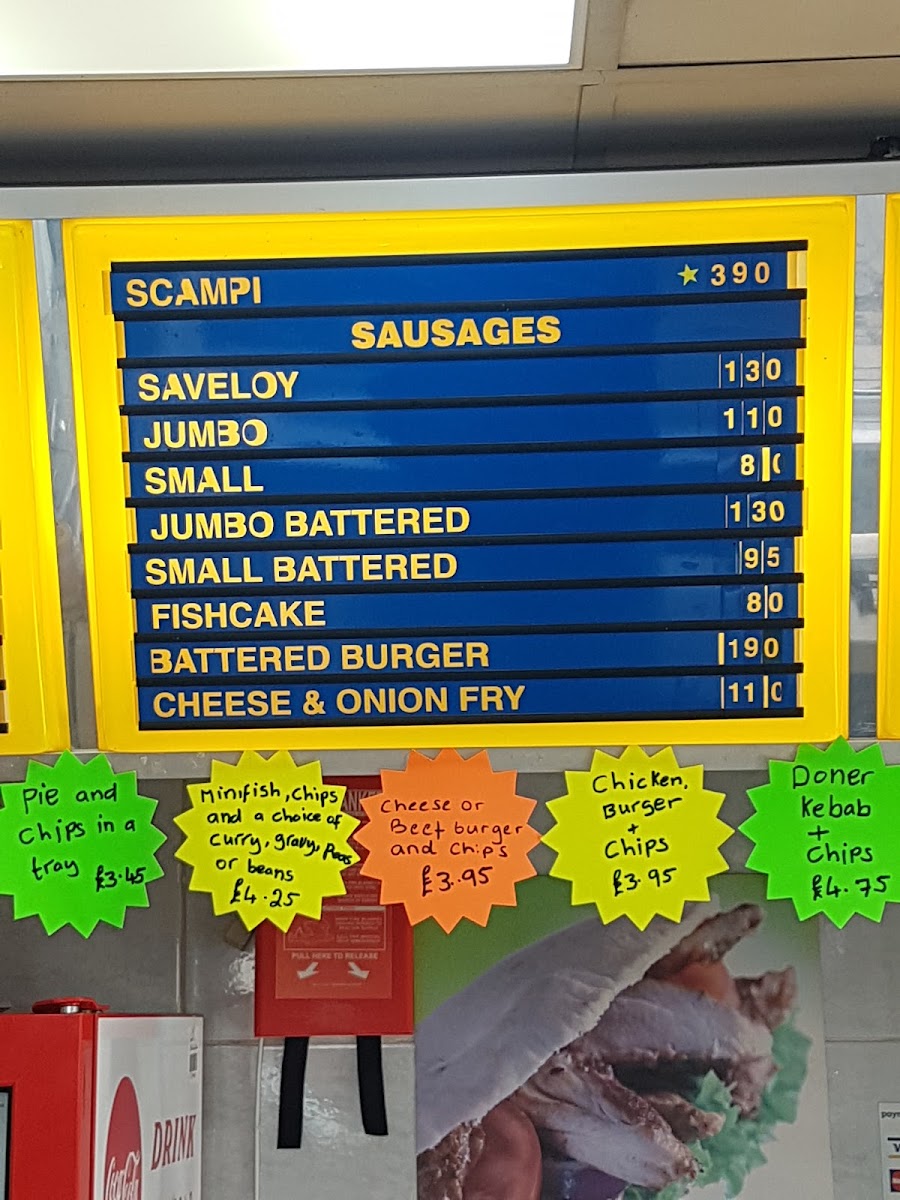 SCAMPI ★ 390
SAUSAGES
SAVELOY 130
JUMBO 110
SMALL 80
JUMBO BATTERED 130
SMALL BATTERED 95
FISHCAKE 80
BATTERED BURGER 190
CHEESE & ONION FRY 110
Pie and
Chips in a
tray £3.45
Minifish, chips
and a choice of
curry, gravy, Peas
or beans
£4.25
Cheese or
Beef burger
and chips
£3.95
Chicken.
Burger
+
Chips
£3.95
Doner
Kebab
+
Chips
£4.75
PULL HERE TO RELEASE
DRINK
Coca-Cola